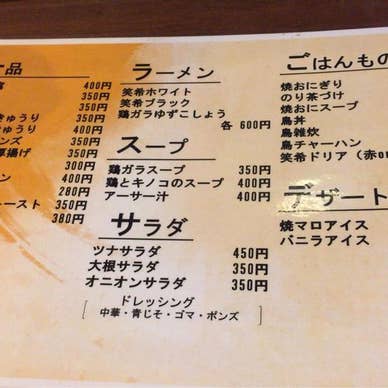 品
400円
350円
きゅうり 350円
ゅうり 400円
ンズ 350円
厚揚げ 350円
350円
ン 400円
280円
ースト 350円
380円
ラーメン
笑希ホワイト
笑希ブラック
鶏ガラゆずこしょう
各 600円
スープ
鶏ガラスープ 350円
鶏とキノコのスープ 400円
アーサー汁 400円
サラダ
ツナサラダ 450円
大根サラダ 350円
オニオンサラダ 350円
ドレッシング
中華・青じそ・ゴマ・ポンズ
ごはんもの
焼おにぎり
のり茶づけ
焼おにスープ
鳥丼
鳥雑炊
鳥チャーハン
笑希ドリア（赤or
デザート
焼マロアイス
バニラアイス